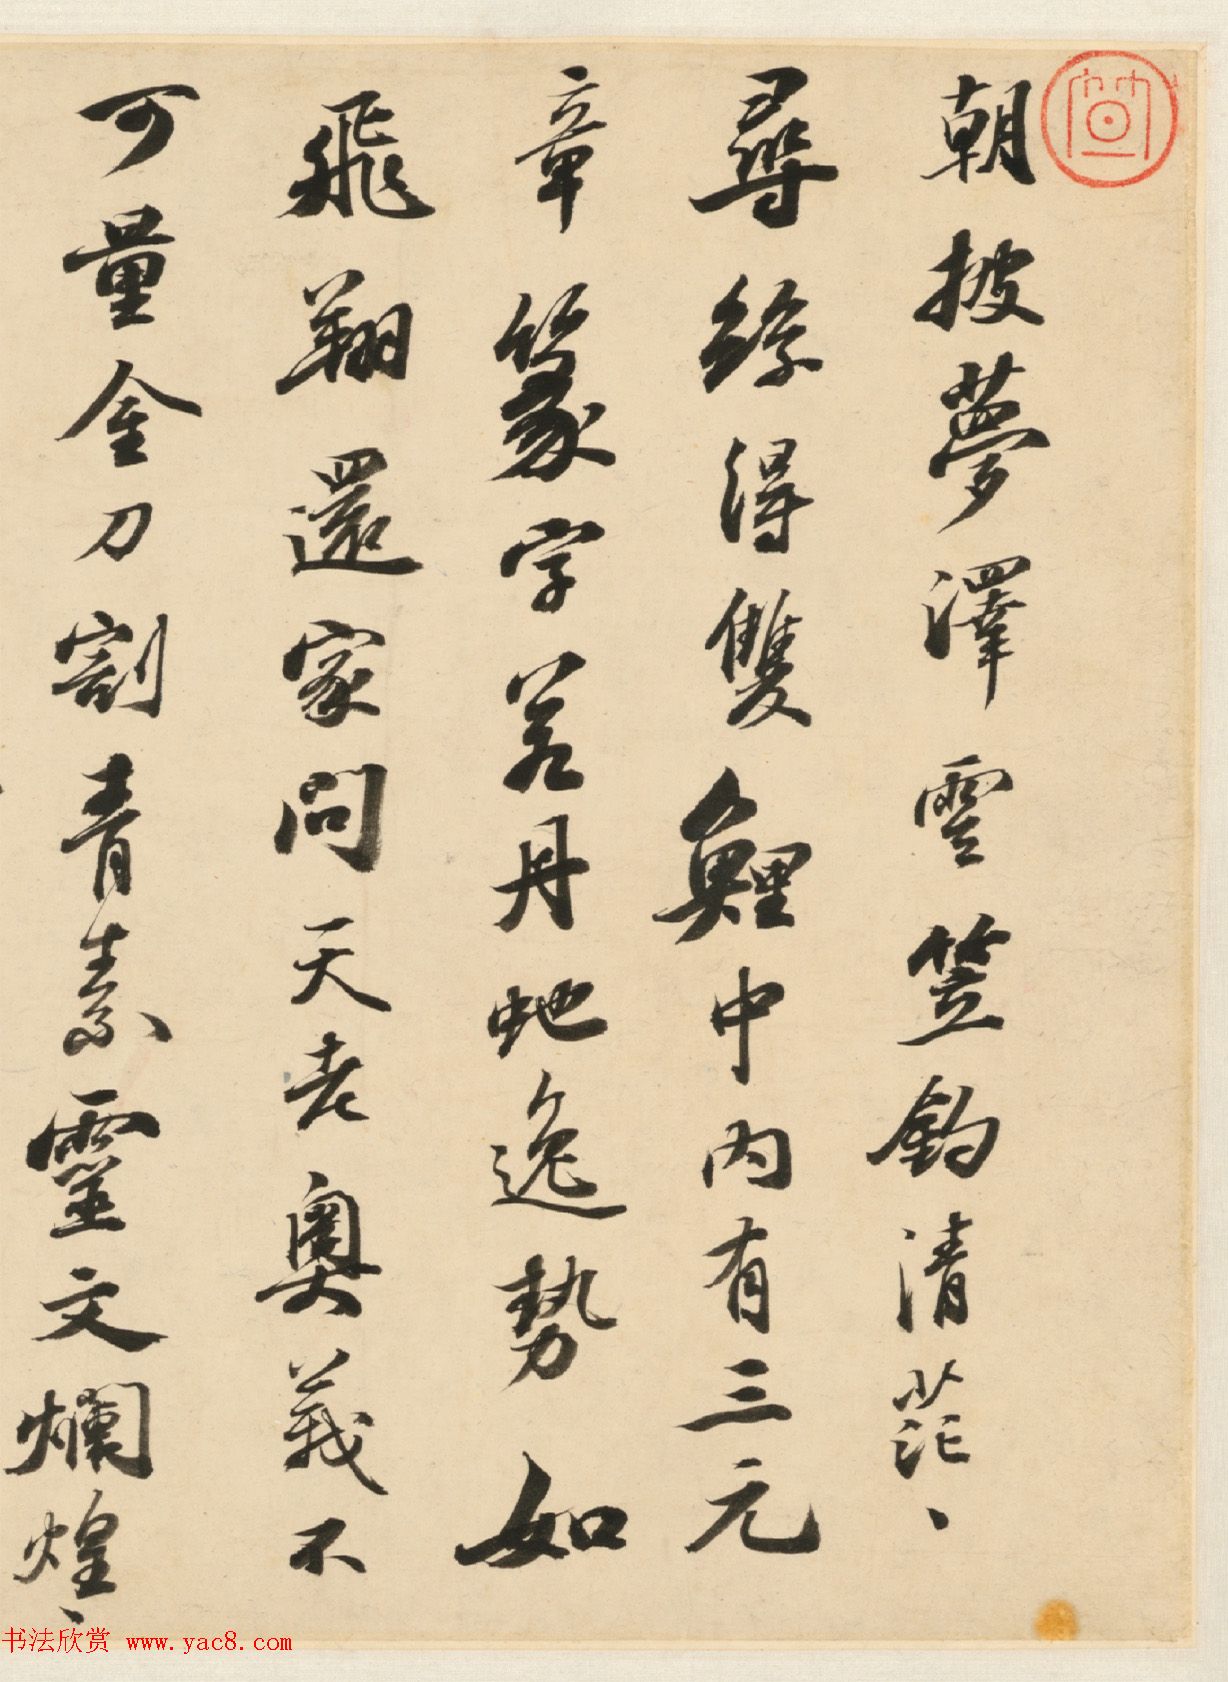 朝披夢澤雲笠釣清茫、
尋絲得雙鯉中內有三元
章篆字若丹虵逸勢如
飛翔還家問天老奧義不
可量金刀割青素靈文爛煌、
书法欣赏 www.yac8.com